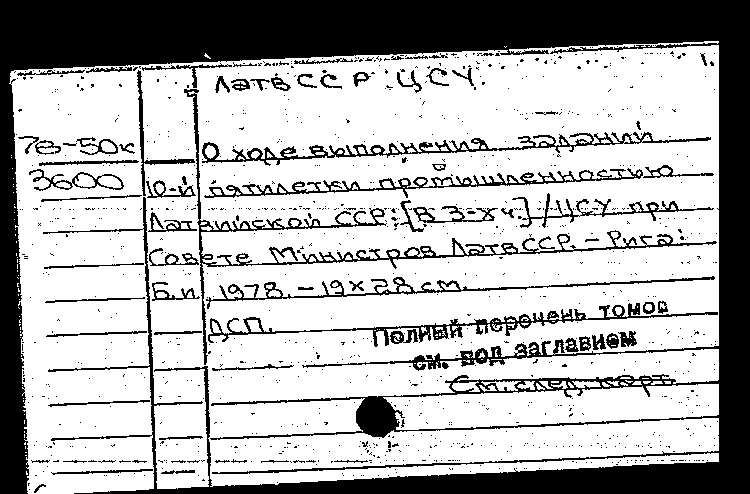 1.
ЛатвССР. ЦСУ.
78-50к
3600
О ходе выполнения заданий
10-й пятилетки промышленностью
Латвийской ССР: [В 3-х ч.] / ЦСУ при
Совете Министров ЛатвССР. – Рига:
Б.и., 1978. – 19×28 см.
ДСП.
Полный перечень томов
см. под заглавием
См. след. карт.